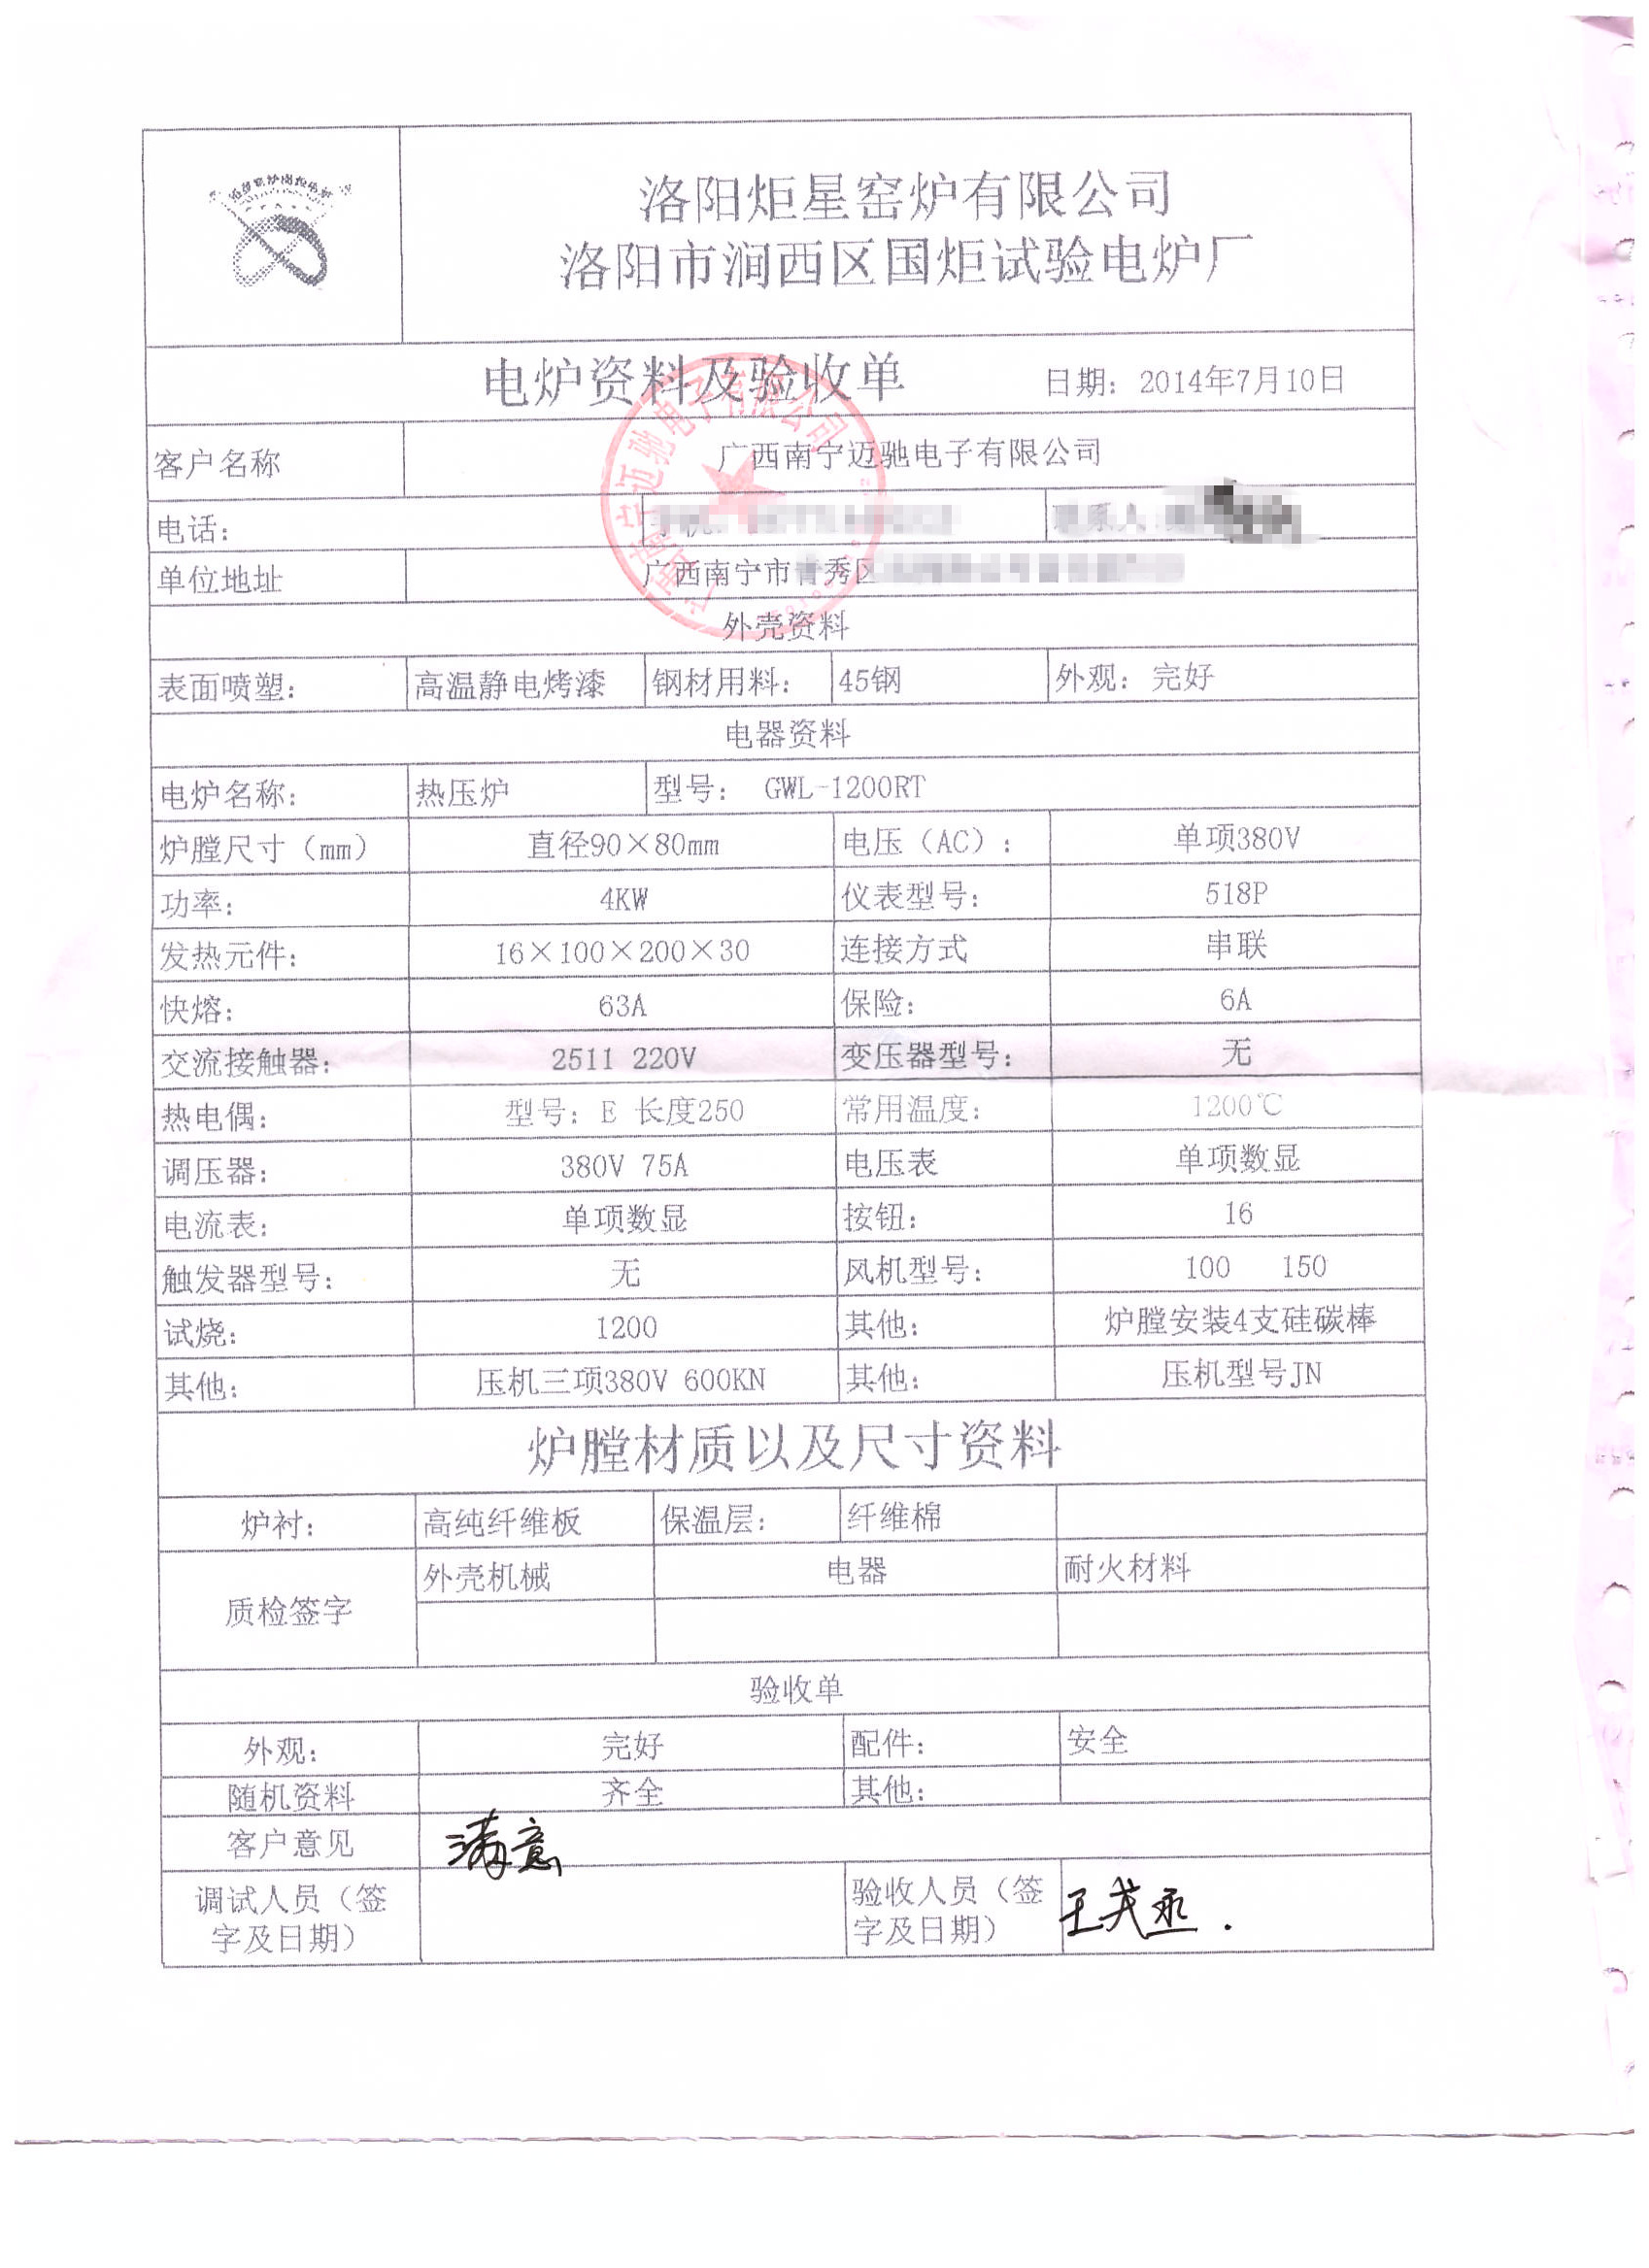 洛阳炬星窑炉有限公司
洛阳市涧西区国炬试验电炉厂
电炉资料及验收单 日期：2014年7月10日
客户名称 广西南宁迈驰电子有限公司
电话：
单位地址 广西南宁市青秀区
外壳资料
表面喷塑： 高温静电烤漆 钢材用料： 45钢 外观：完好
电器资料
电炉名称： 热压炉 型号： GWL-1200RT
炉膛尺寸（mm） 直径90×80mm 电压（AC）： 单项380V
功率： 4KW 仪表型号： 518P
发热元件： 16×100×200×30 连接方式 串联
快熔： 63A 保险： 6A
交流接触器： 2511 220V 变压器型号： 无
热电偶： 型号：E 长度250 常用温度： 1200℃
调压器： 380V 75A 电压表 单项数显
电流表： 单项数显 按钮： 16
触发器型号： 无 风机型号： 100 150
试烧： 1200 其他： 炉膛安装4支硅碳棒
其他： 压机三项380V 600KN 其他： 压机型号JN
炉膛材质以及尺寸资料
炉衬： 高纯纤维板 保温层： 纤维棉
质检签字 外壳机械 电器 耐火材料
验收单
外观： 完好 配件： 安全
随机资料 齐全 其他：
客户意见 满意
调试人员（签字及日期） 验收人员（签字及日期）